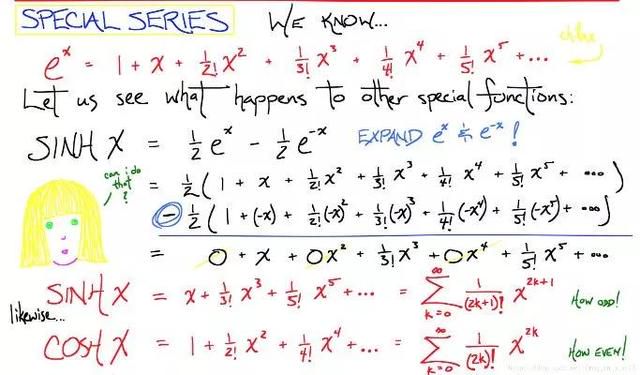 SPECIAL SERIES WE KNOW...
e^x = 1 + x + 1/2! x^2 + 1/3! x^3 + 1/4! x^4 + 1/5! x^5 + ...
Let us see what happens to other special functions:
SINH X = 1/2 e^x - 1/2 e^-x EXPAND e^x & e^-x !
can i do that ?
= 1/2 ( 1 + x + 1/2! x^2 + 1/3! x^3 + 1/4! x^4 + 1/5! x^5 + ... )
- 1/2 ( 1 + (-x) + 1/2! (-x)^2 + 1/3! (-x)^3 + 1/4! (-x^4) + 1/5! (-x^5) + ... )
= 0 + x + 0x^2 + 1/3! x^3 + 0x^4 + 1/5! x^5 + ...
SINH X = x + 1/3! x^3 + 1/5! x^5 + ... = ∑ k=0 ∞ 1/(2k+1)! x^2k+1 HOW ODD!
likewise...
COSH X = 1 + 1/2! x^2 + 1/4! x^4 + ... = ∑ k=0 ∞ 1/(2k)! x^2k HOW EVEN!